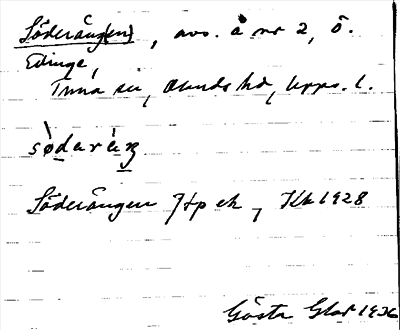 Söderäng(en), avs. å nr 2, Ö.
Edinge,
Tuna sn, Olands hd, Upps. l.
sø̀daràŋ
Söderängen Jfp ek, Kk 1928
Gösta Glad 1936